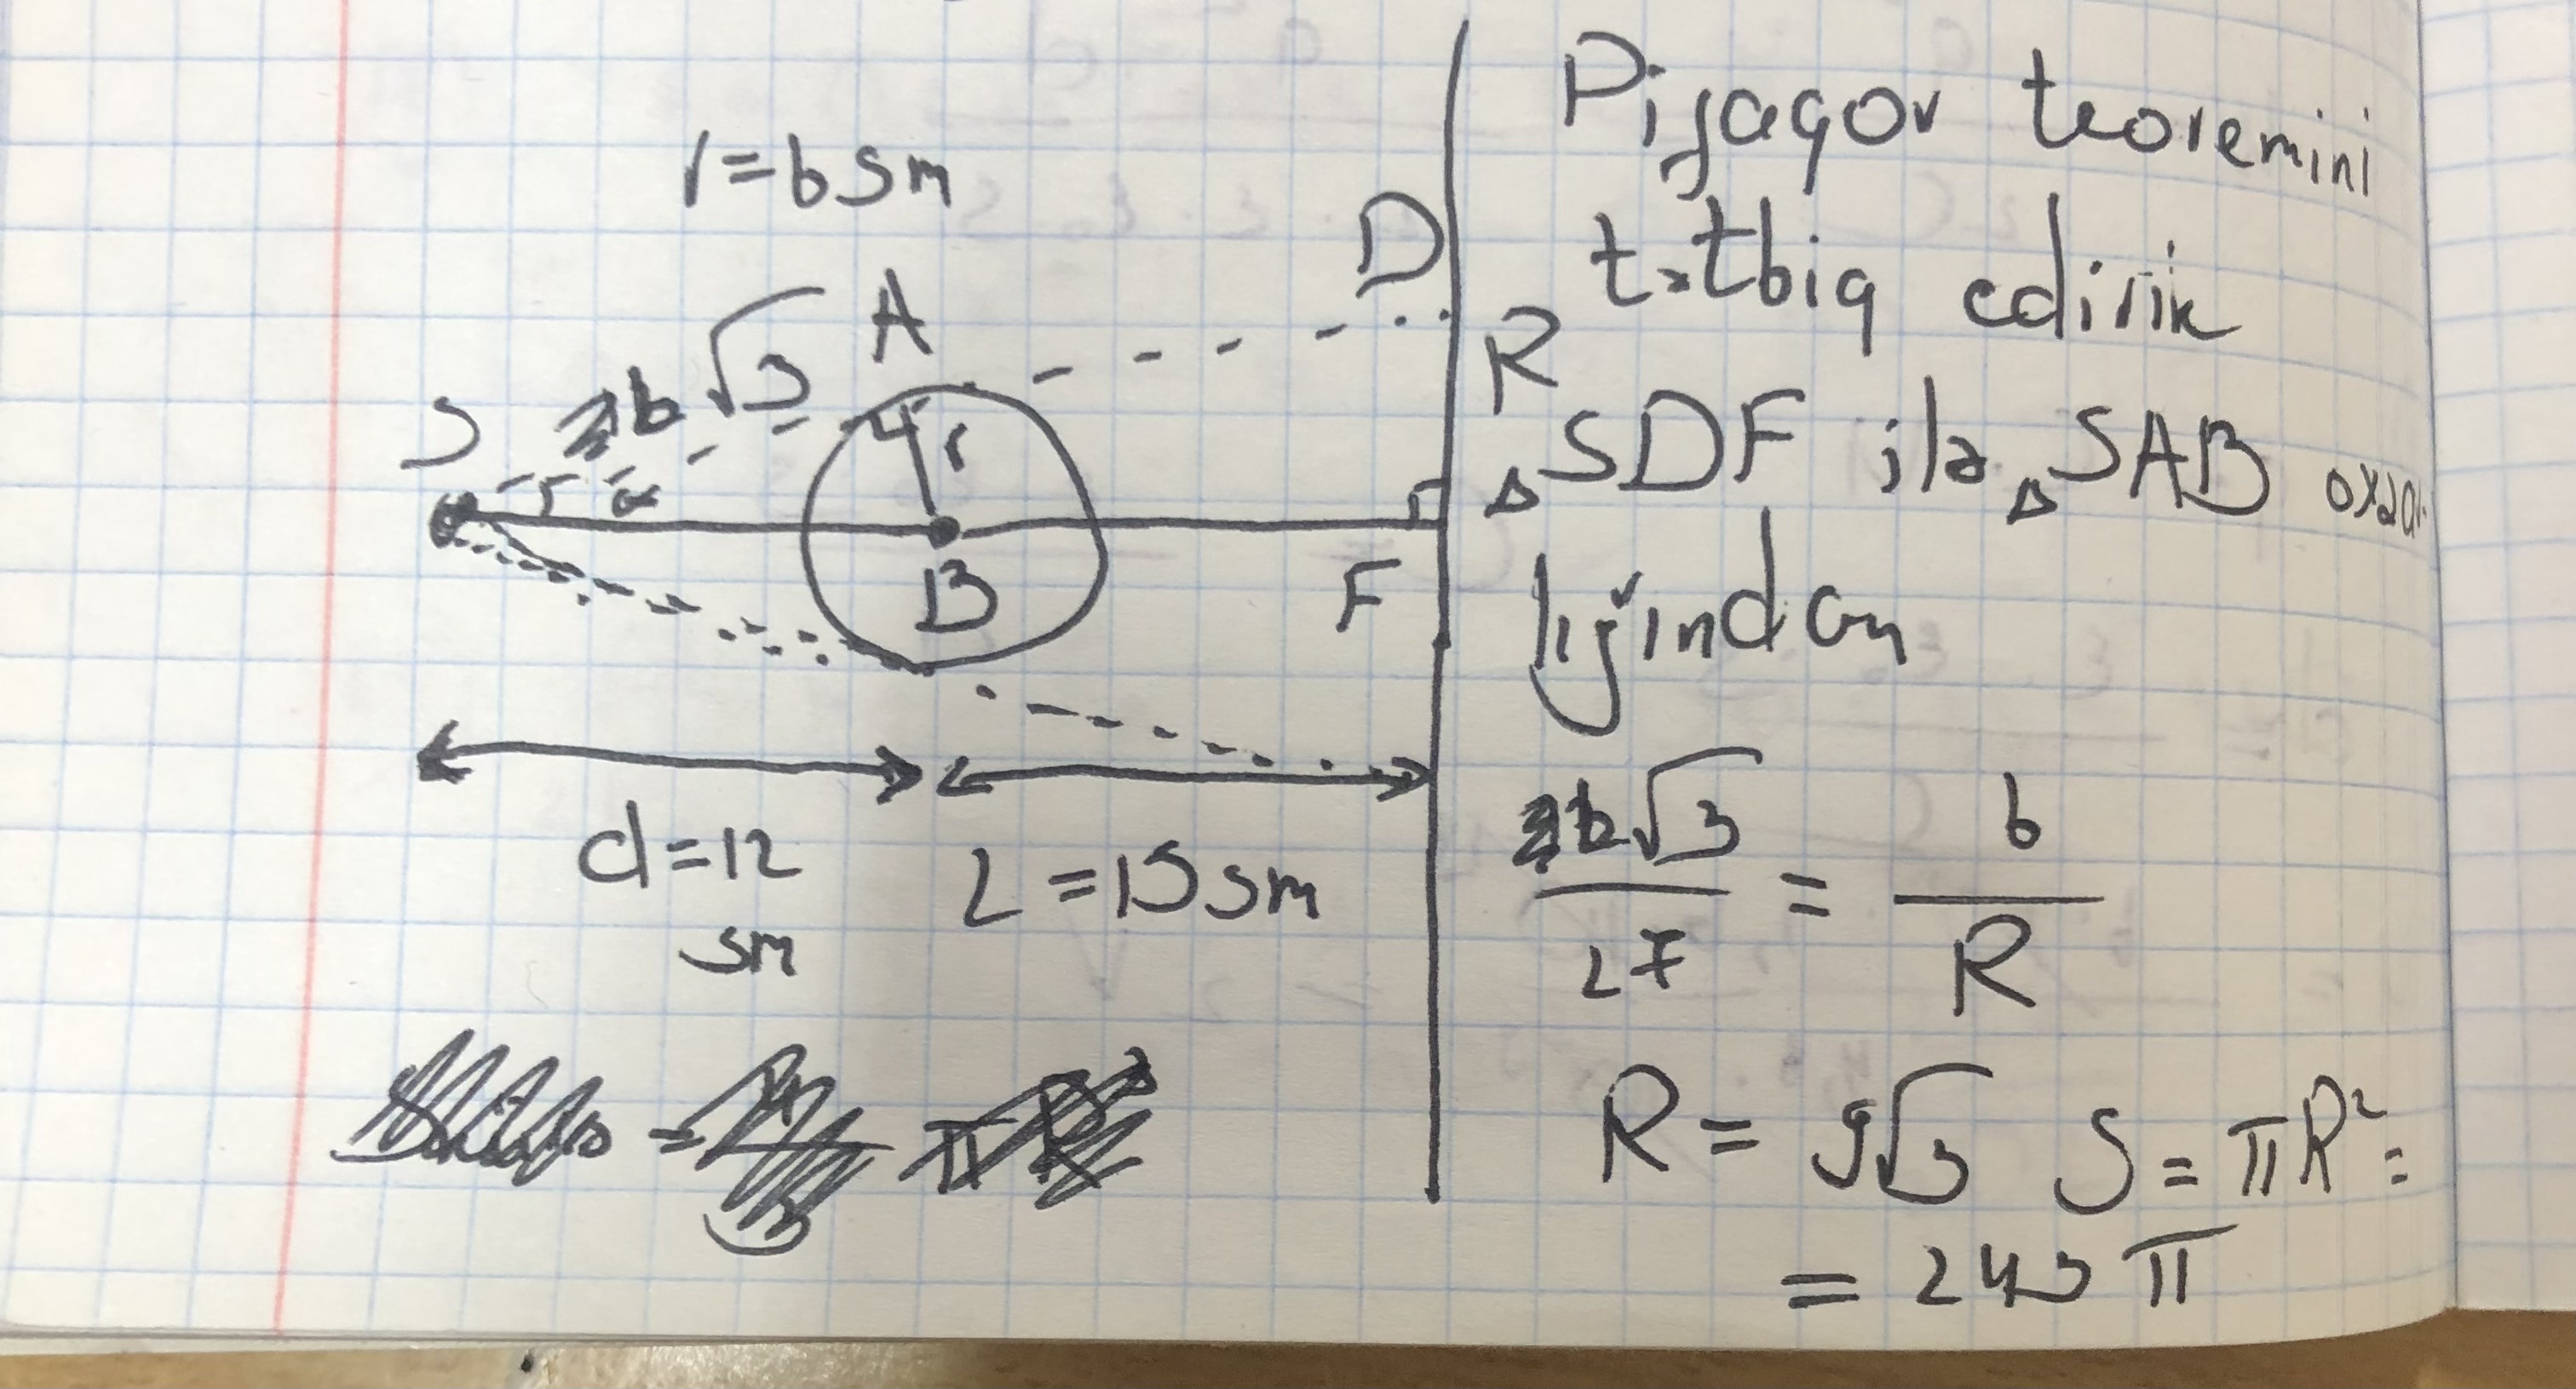 r=6sm
S
6√3
A
D
R
r
α
B
F
d=12
sm
L=15sm
Pifaqor teoremini
tətbiq edirik
▵SDF ilə ▵SAB oxşar
lığından
6√3/27 = 6/R
R = 9√3 S = πR² =
= 243 π